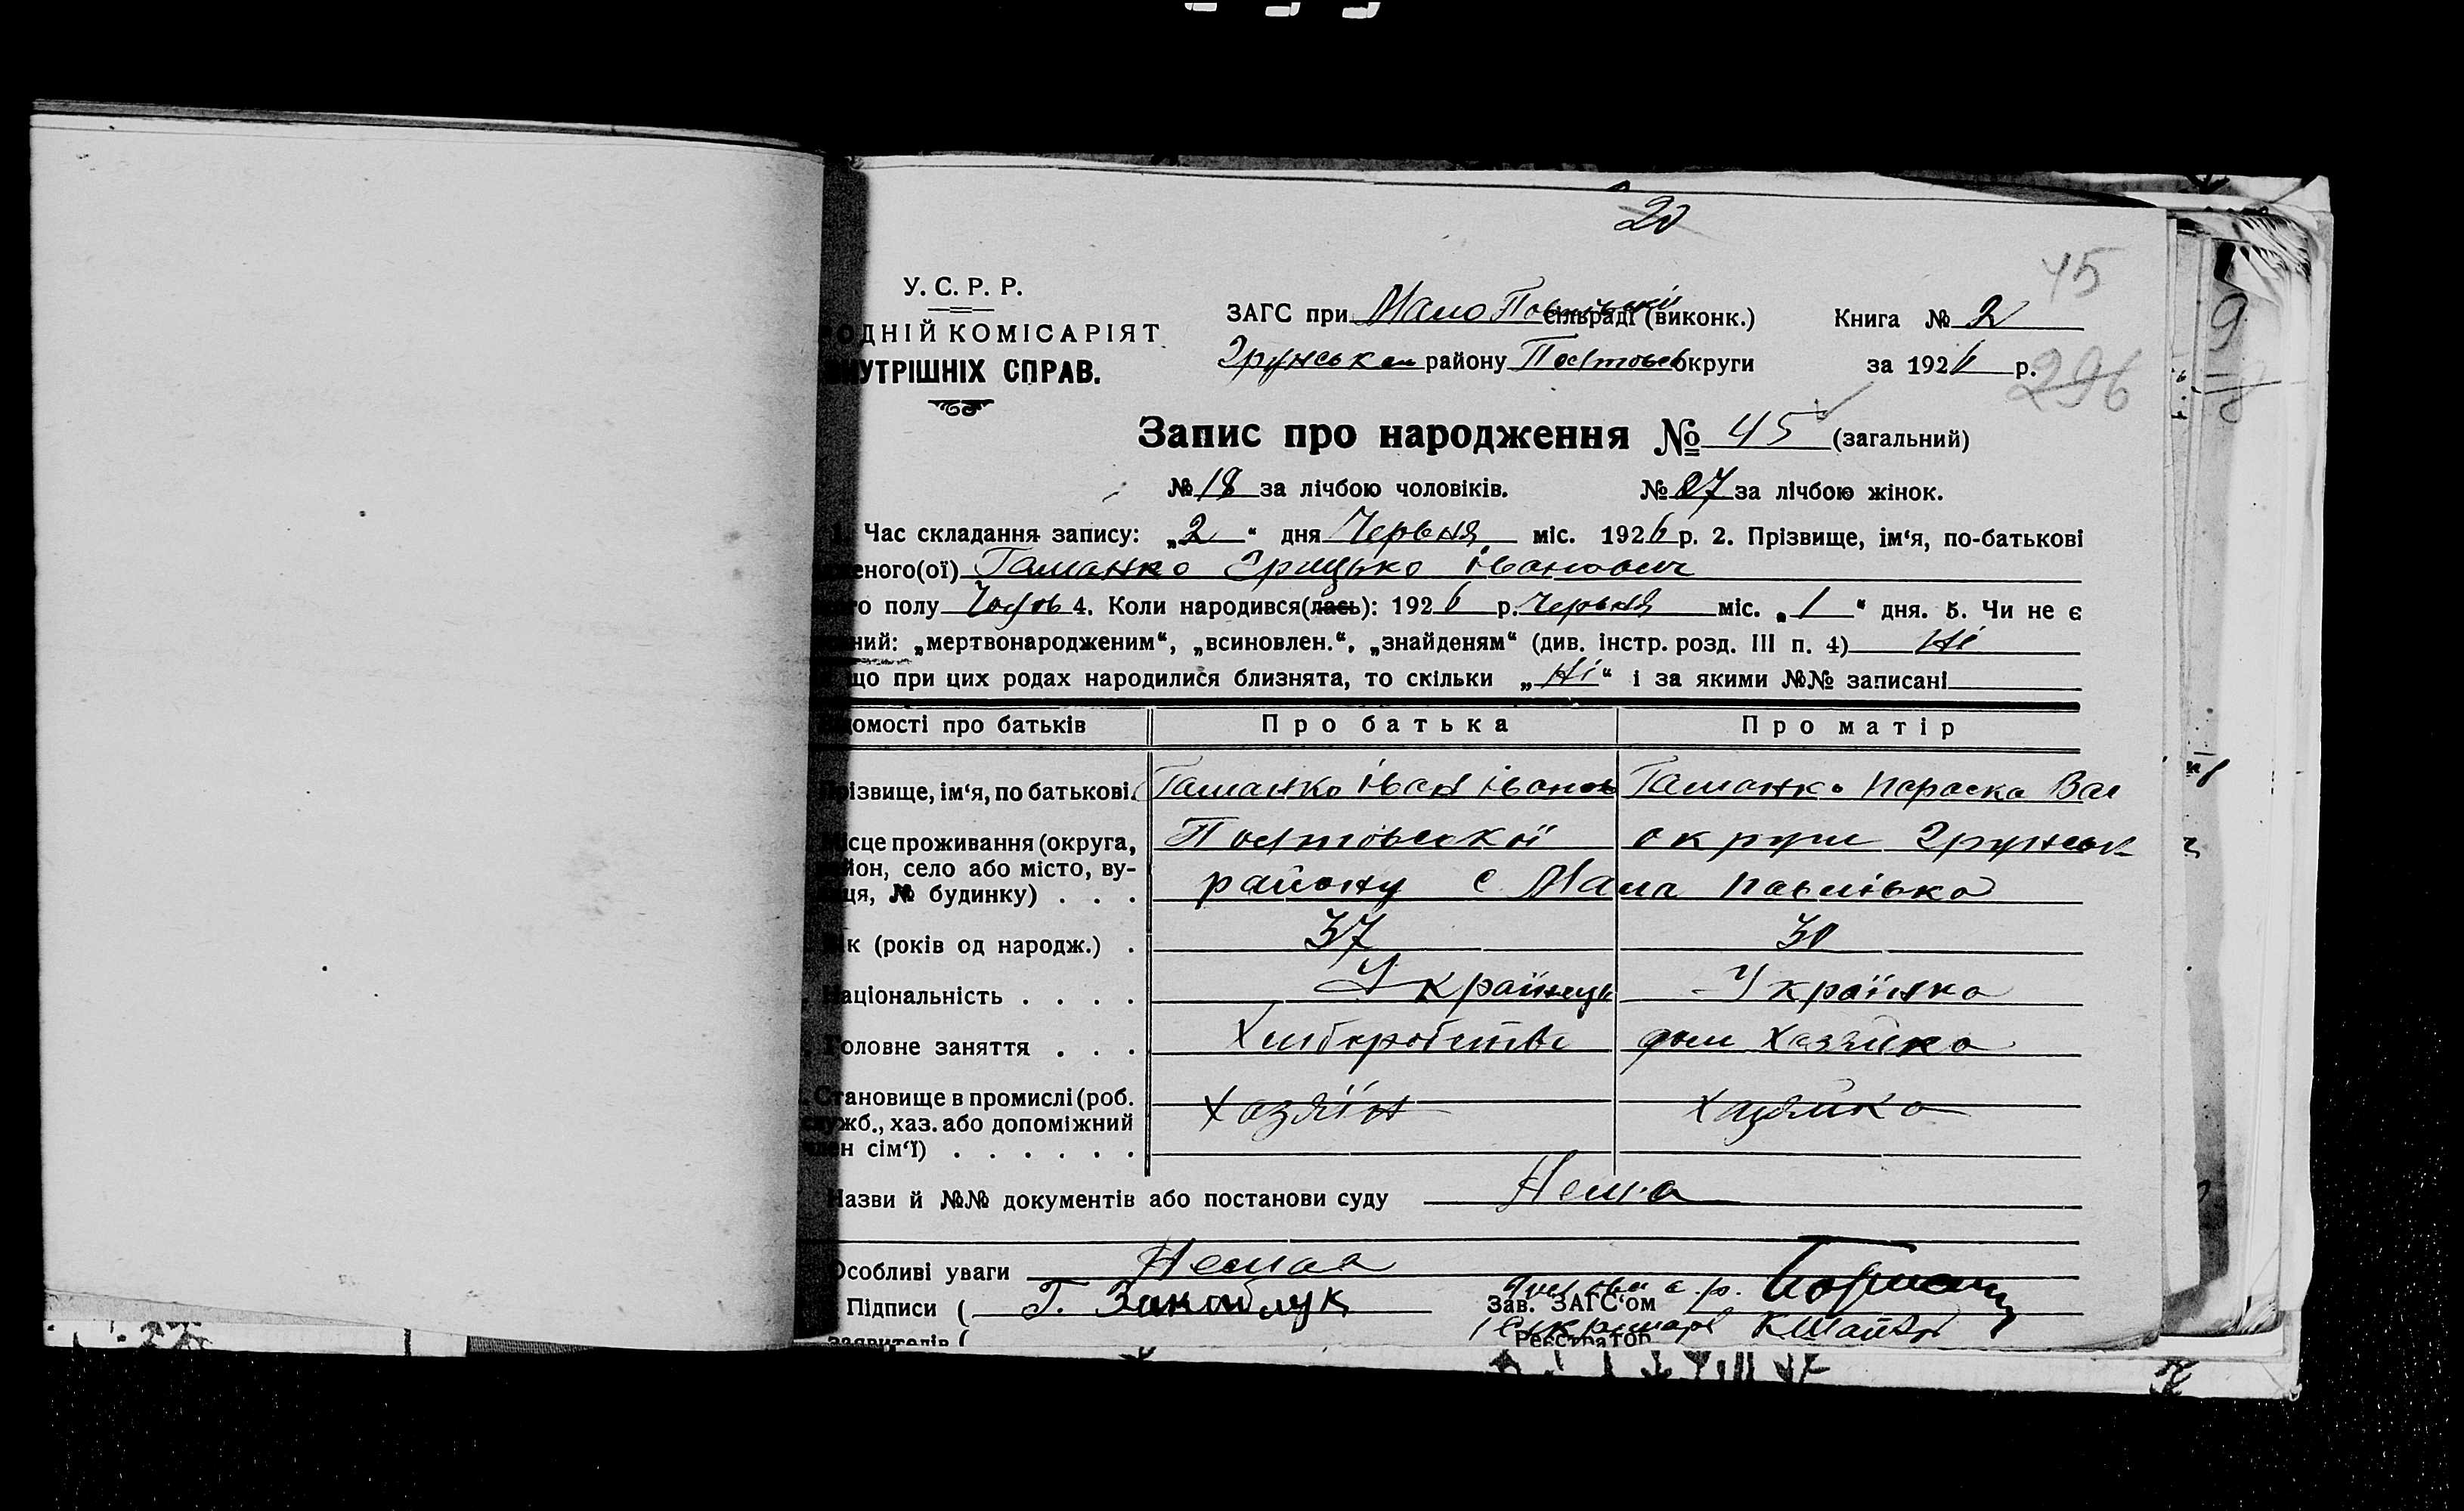 20
45
У. С. Р. Р.
ОДНІЙ КОМІСАРІЯТ
УТРІШНІХ СПРАВ.
ЗАГС при Мало Павлівській сільраді (виконк.)
Грунського району Полтовськ округи
Книга № 2
за 1926 р.
296
Запис про народження № 45 (загальний)
№ 18 за лічбою чоловіків. № 27 за лічбою жінок.
1. Час складання запису: „2“ дня Червня міс. 1926 р. 2. Прізвище, ім‘я, по-батькові
еного(ої) Таманко Грицько Іванович
го полу Чолов 4. Коли народився(лась): 1926 р. Червня міс. „1“ дня. 5. Чи не є
ний: „мертвонародженим“, „всиновлен.“, „знайденям“ (див. інстр. розд. III п. 4) Ні
що при цих родах народилися близнята, то скільки „Ні“ і за якими №№ записані
омості про батьків Про батька Про матір
різвище, ім‘я, по батькові. Таманко Іван Іванов Таманко Параска Вас
сце проживання (округа, Полтовської округи Грунськ
йон, село або місто, ву-
ця, № будинку) . . . району с Мала Павлівка
к (років од народж.) . 37 30
Національність . . . . Українець Українка
Головне заняття . . . Хліборобство дом хазяйка
Становище в промислі (роб. Хазяїн Хазяйка
ужб., хаз. або допоміжний
ен сім‘ї) . . . . . .
Назви й №№ документів або постанови суду Нема
Особливі уваги Немає
Підписи ( Г.
Голова с. р.
Зав. ЗАГС‘ом
Секретарь
Реєстратор
заявителів (